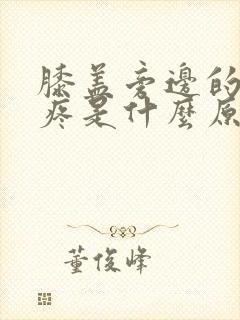 膝盖旁边的
疼是什麼原
董俊峰